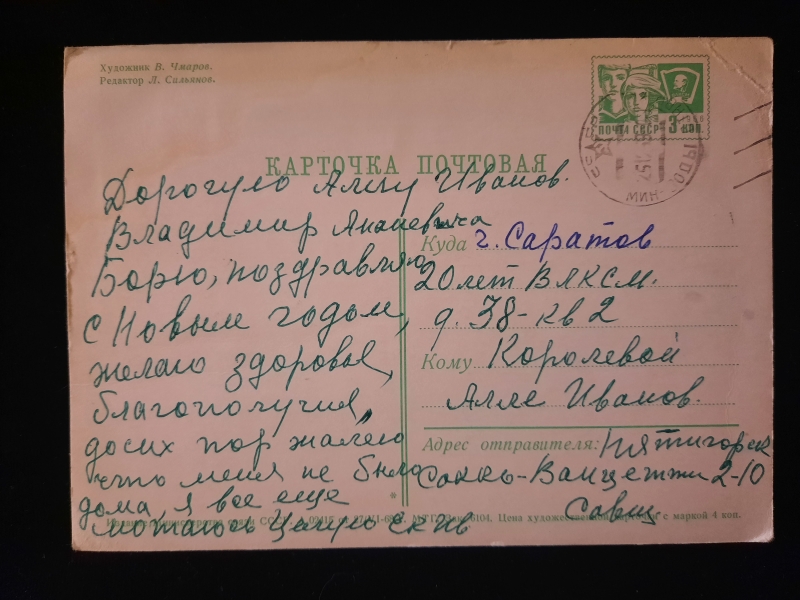 Художник В. Чмаров.
Редактор Л. Сильянов.
ПОЧТА СССР 3 коп
МИН-
КАРТОЧКА ПОЧТОВАЯ
Дорогую Аллу Иванов.
Владимир
Борю, поздравляю
с Новым годом,
желаю здоровья,
благополучия,
досих пор жалею
что меня не было
дома, я все еще
мотаюсь Целую
Куда г. Саратов
20 лет ВЛКСМ.
д. 38-кв 2
Кому Королевой
Алле Иванов.
Адрес отправителя: Пятигорск
Сакко-Ванцетти 2-10
Савищ
Цена художественной с маркой 4 коп.